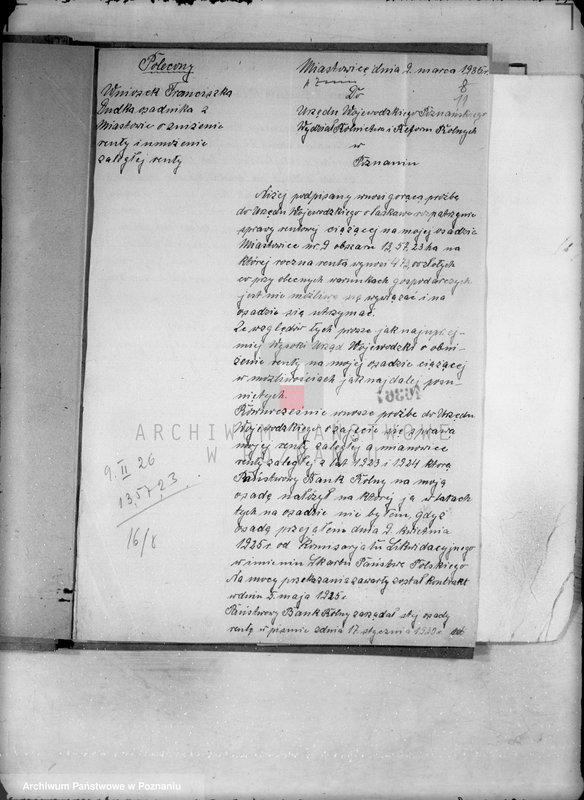 Polecony
Miastowice dnia 9. marca 1936 r.
8
11
Wniosek Franciszka
Dudka osadnika z
Miastowic o zniżenie
renty i umorzenie
zaległej renty
Do
Urzędu Wojewódzkiego Poznańskiego
Wydział Rolnictwa i Reform Rolnych
w
Poznaniu
Niżej podpisany wnosi gorącą prośbę
do Urzędu Wojewódzkiego o łaskawe rozpatrzenie
sprawy rentowej ciążącej na mojej osadzie
Miastowice nr. 9 obszaru 13,57,23 ha na
której roczna renta wynosi 472,00 złotych
co przy obecnych warunkach gospodarczych
jest nie możliwe się wywiązać i na
osadzie się utrzymać.
Ze względów tych proszę jak najuprzej-
miej Wysoki Urząd Wojewódzki o obni-
żenie renty na mojej osadzie ciążącej
w możliwościach jak najdalej posu-
niętych.
Równocześnie wnoszę prośbę do Urzędu
Wojewódzkiego o zajęcie się sprawą
mojej renty zaległej a mianowicie
renty zaległej z lat 1923 i 1924 którą
Państwowy Bank Rolny na moją
osadę nałożył na której ja w latach
tych na osadzie nie byłem, gdyż
osadę przejąłem dnia 9. kwietnia
1925 r. od Komisarjatu Likwidacyjnego
w imieniu Skarbu Państwa Polskiego
Na mocy przekazania zawarty został kontrakt
w dniu 5. maja 1925 r.
Państwowy Bank Rolny zażądał z tej osady
rentę w piśmie z dnia 17. stycznia
9. II 26
13,57,23
16/8
ARCHIWUM PAŃSTWOWE
W POZNANIU
Archiwum Państwowe w Poznaniu